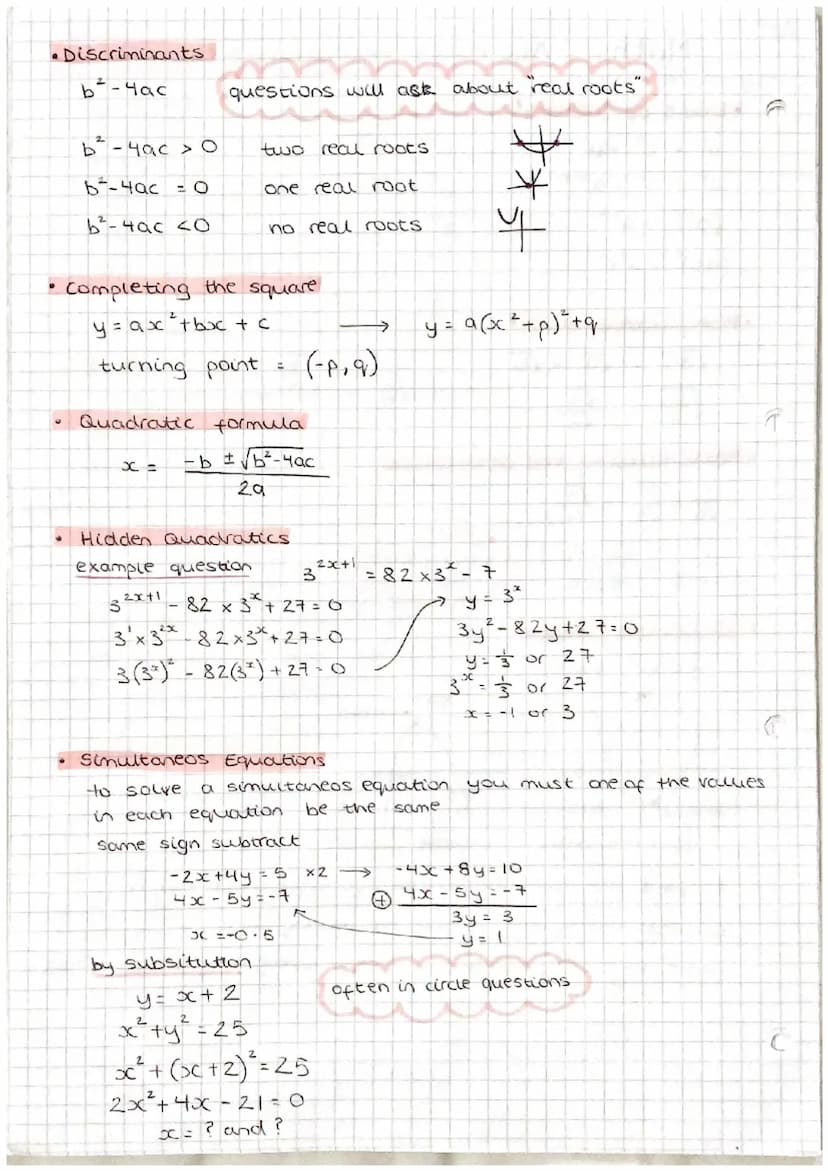 • Discriminants
b² - 4ac questions will ask about "real roots"
b² - 4ac > 0 two real roots
b² - 4ac = 0 one real root
b² - 4ac < 0 no real roots
• Completing the square
y = ax² + bx + c → y = a(x² + p)² + q
turning point = (-p, q)
• Quadratic formula
x = (-b ± √(b² - 4ac)) / 2a
• Hidden Quadratics
example question 3^(2x+1) = 82 × 3^x - 7
3^(2x+1) - 82 × 3^x + 27 = 0 y = 3^x
3¹ × 3^(2x) - 82 × 3^x + 27 = 0 3y² - 82y + 27 = 0
3(3^x)² - 82(3^x) + 27 = 0 y = 1/3 or 27
3^x = 1/3 or 27
x = -1 or 3
• Simultaneos Equations
to solve a simultaneos equation you must one of the values
in each equation be the same
same sign subtract
-2x + 4y = 5 ×2 → -4x + 8y = 10
4x - 5y = -7 ⊕ 4x - 5y = -7
3y = 3
x = -0.5 y = 1
by subsitution
often in circle questions
y = x + 2
x² + y² = 25
x² + (x + 2)² = 25
2x² + 4x - 21 = 0
x = ? and ?